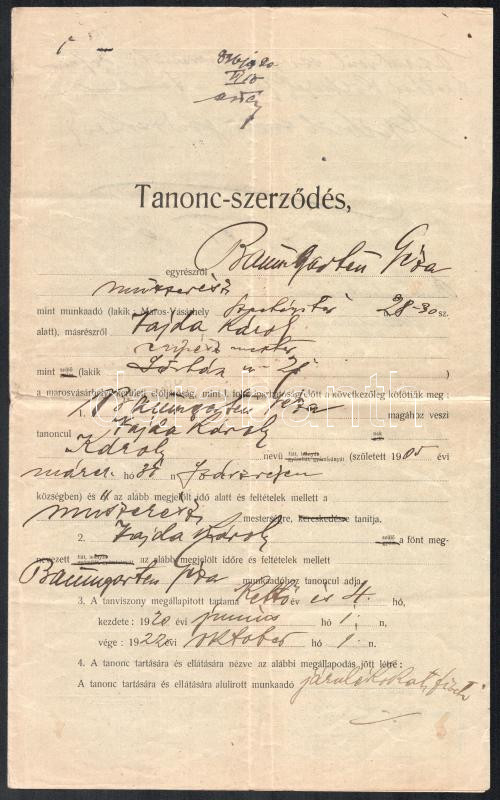 Tanonc-szerződés,
egyrészről Baumgarten Géza
műszerész
mint munkaadó (lakik Maros-Vásárhely Széchenyi tér 28-30 sz.
alatt), másrészről Fajda Károly
mint szülő (lakik
a marosvásárhelyi kerületi elöljáróság, mint I. fokú iparhatóság előtt a következőleg kötötték meg:
1. Baumgarten Géza magához veszi
tanoncul Fajda Károly
Károly nevű fiát, (született 1905 évi
március hó 30 n
községben) és őt az alább megjelölt idő alatt és feltételek mellett a
műszerész mesterségre, kereskedésre tanítja.
2. Fajda Károly a fönt meg-
nevezett fiát, az alább megjelölt időre és feltételek mellett
Baumgarten Géza munkaadóhoz tanoncul adja.
3. A tanviszony megállapított tartama Kettő év és 4. hó,
kezdete: 1920 évi junius hó 1. n,
vége: 1922 évi oktober hó 1. n.
4. A tanonc tartására és ellátására nézve az alábbi megállapodás jött létre:
A tanonc tartására és ellátására alulirott munkaadó járulékokat, fizeti